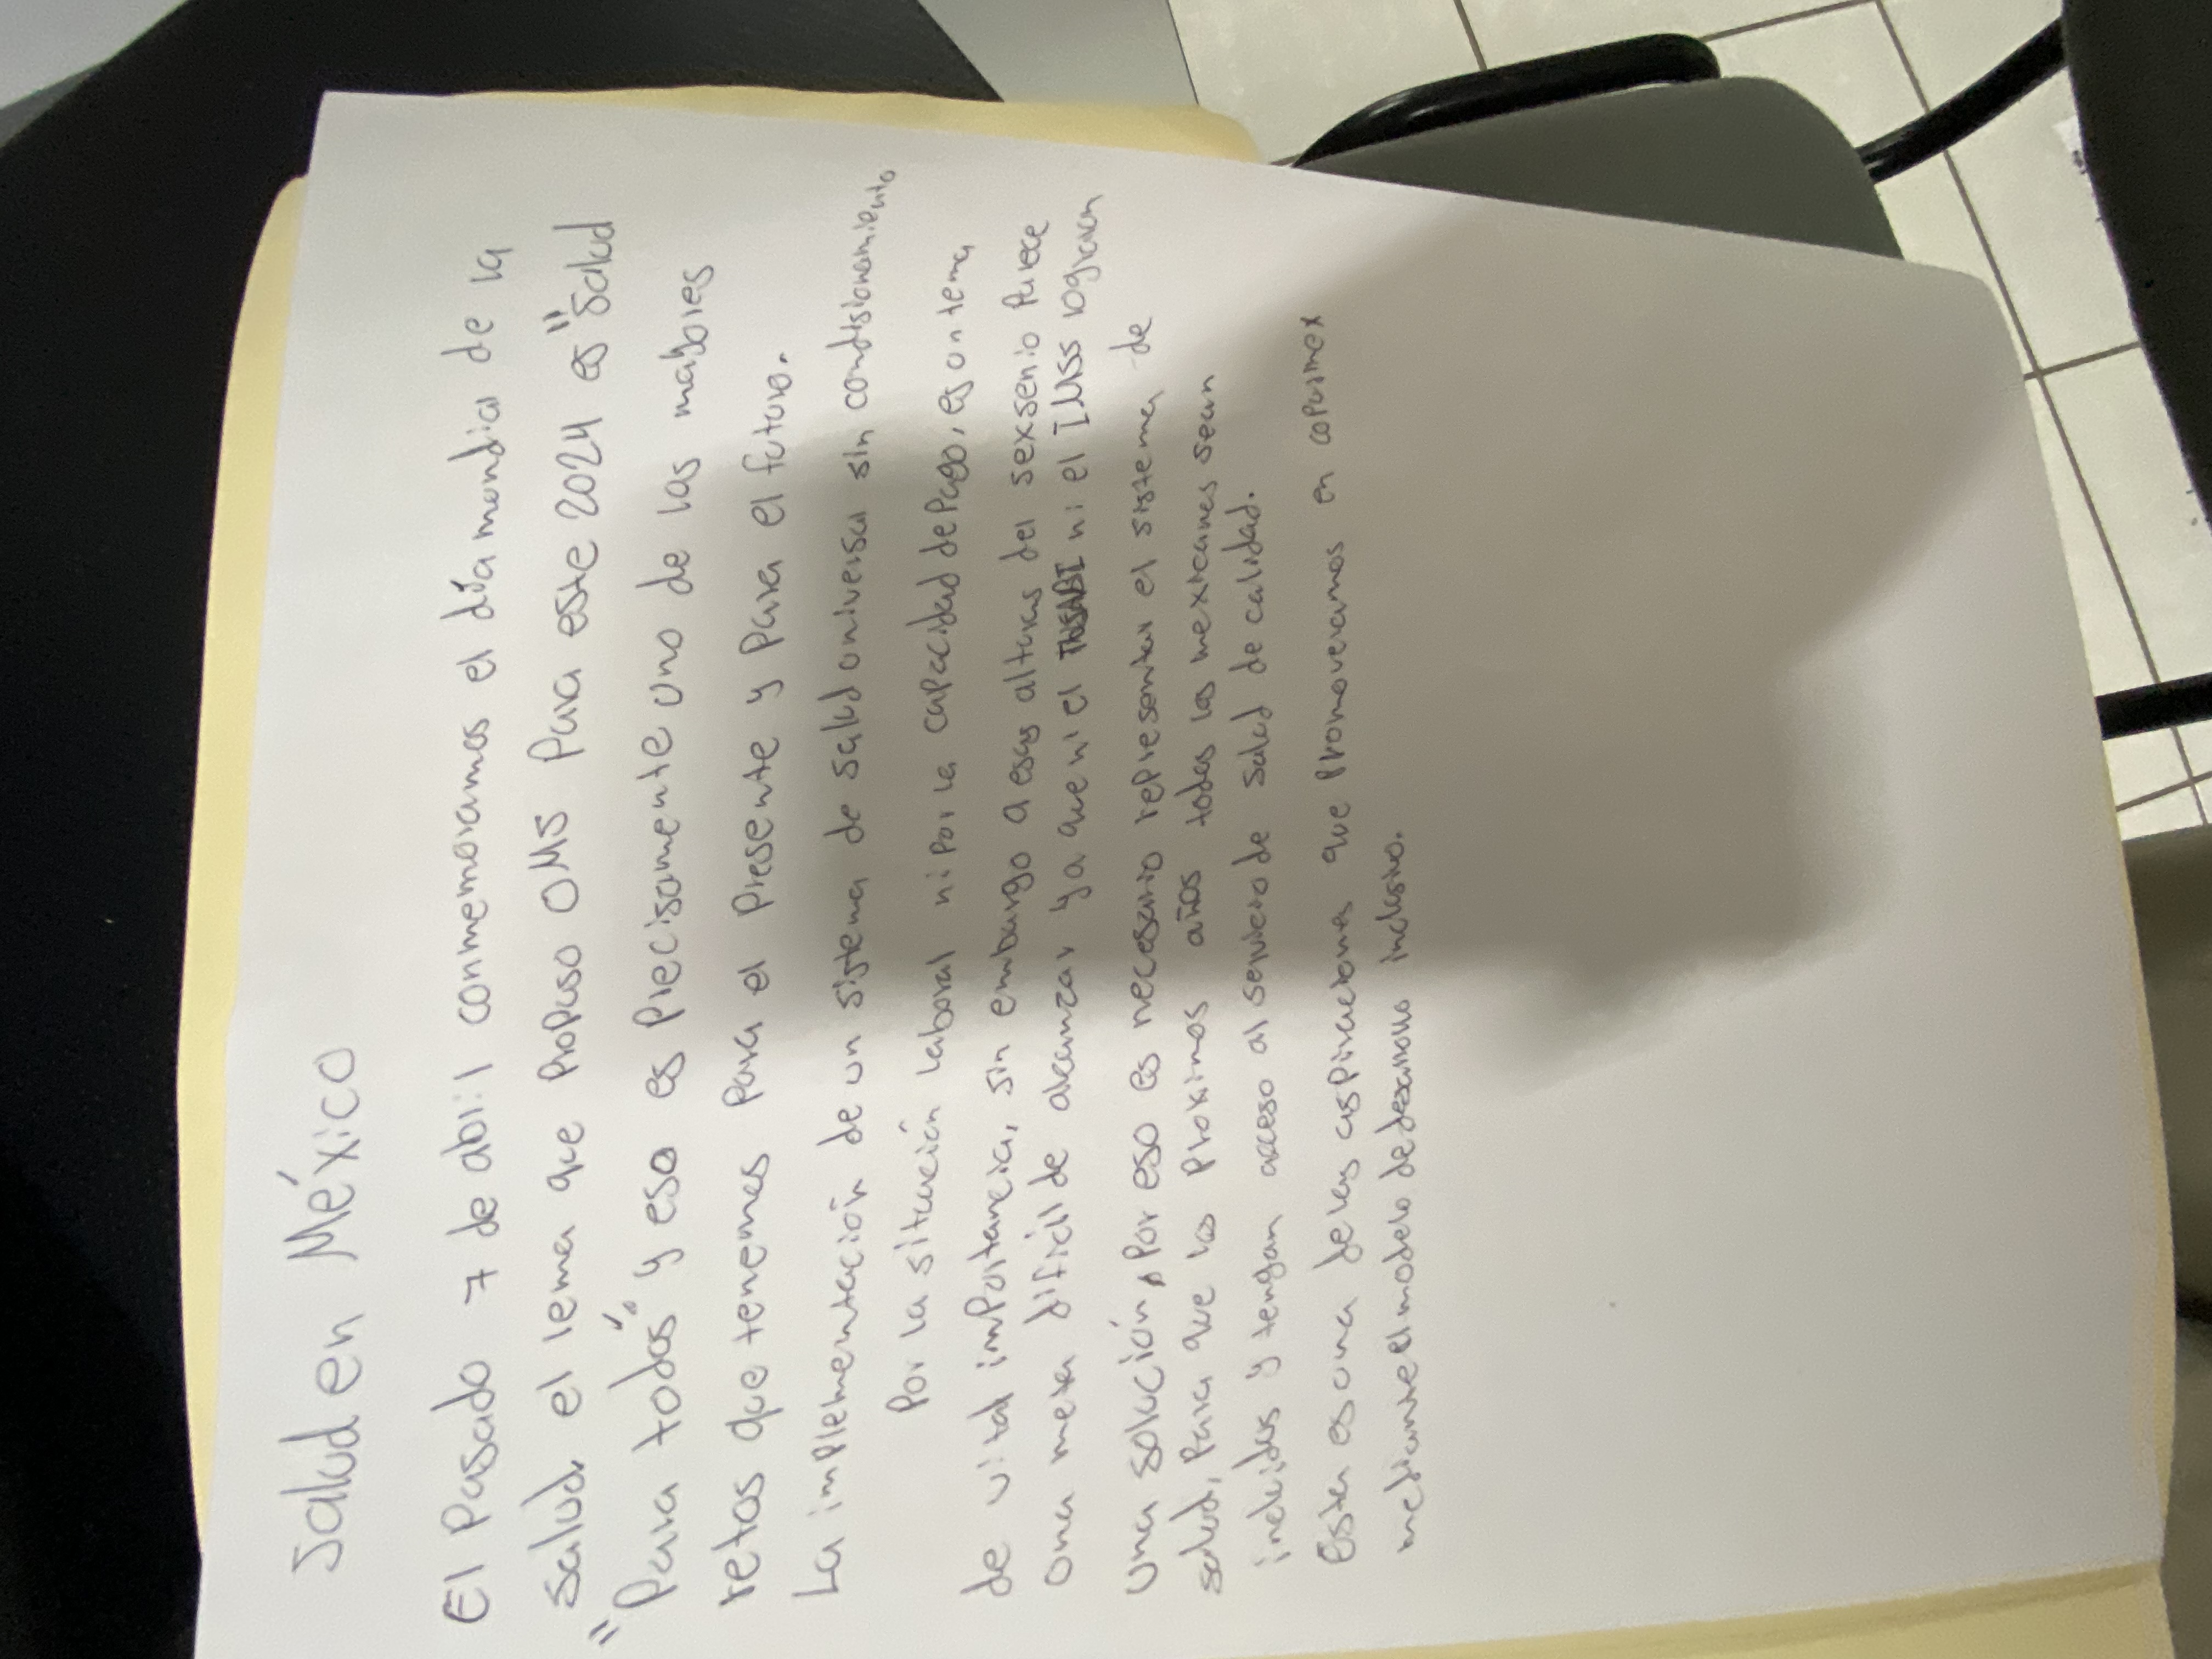 Salud en México
El Pasado 7 de abril conmemoramos el día mondial de la
salud, el lema que ProPuso OMS Para este 2024 es "Salud
"Para todos" y eso es Precisamente uno de las mayores
retos que tenemos Para el Presente y Para el futuro.
La implementación de un sistema de salud universal sin condisionamiento
Por la situación laboral ni Por la capacidad de Pago, es un tema
de vital imPortancia, sin embargo a esas alturas del sexsenio Parece
una meta dificil de alcanzar ya que ni el INSABI ni el IMSS logran
una solución, Por eso es necesario representar el sistema de
salud, Para que los Proximos años todos los mexicanos sean
incluidos y tengan acceso al servicio de salud de calidad.
Esta es una de las asPiraciones que Promoveramos en coparmex
mediante el modelo de desarrollo inclusivo.